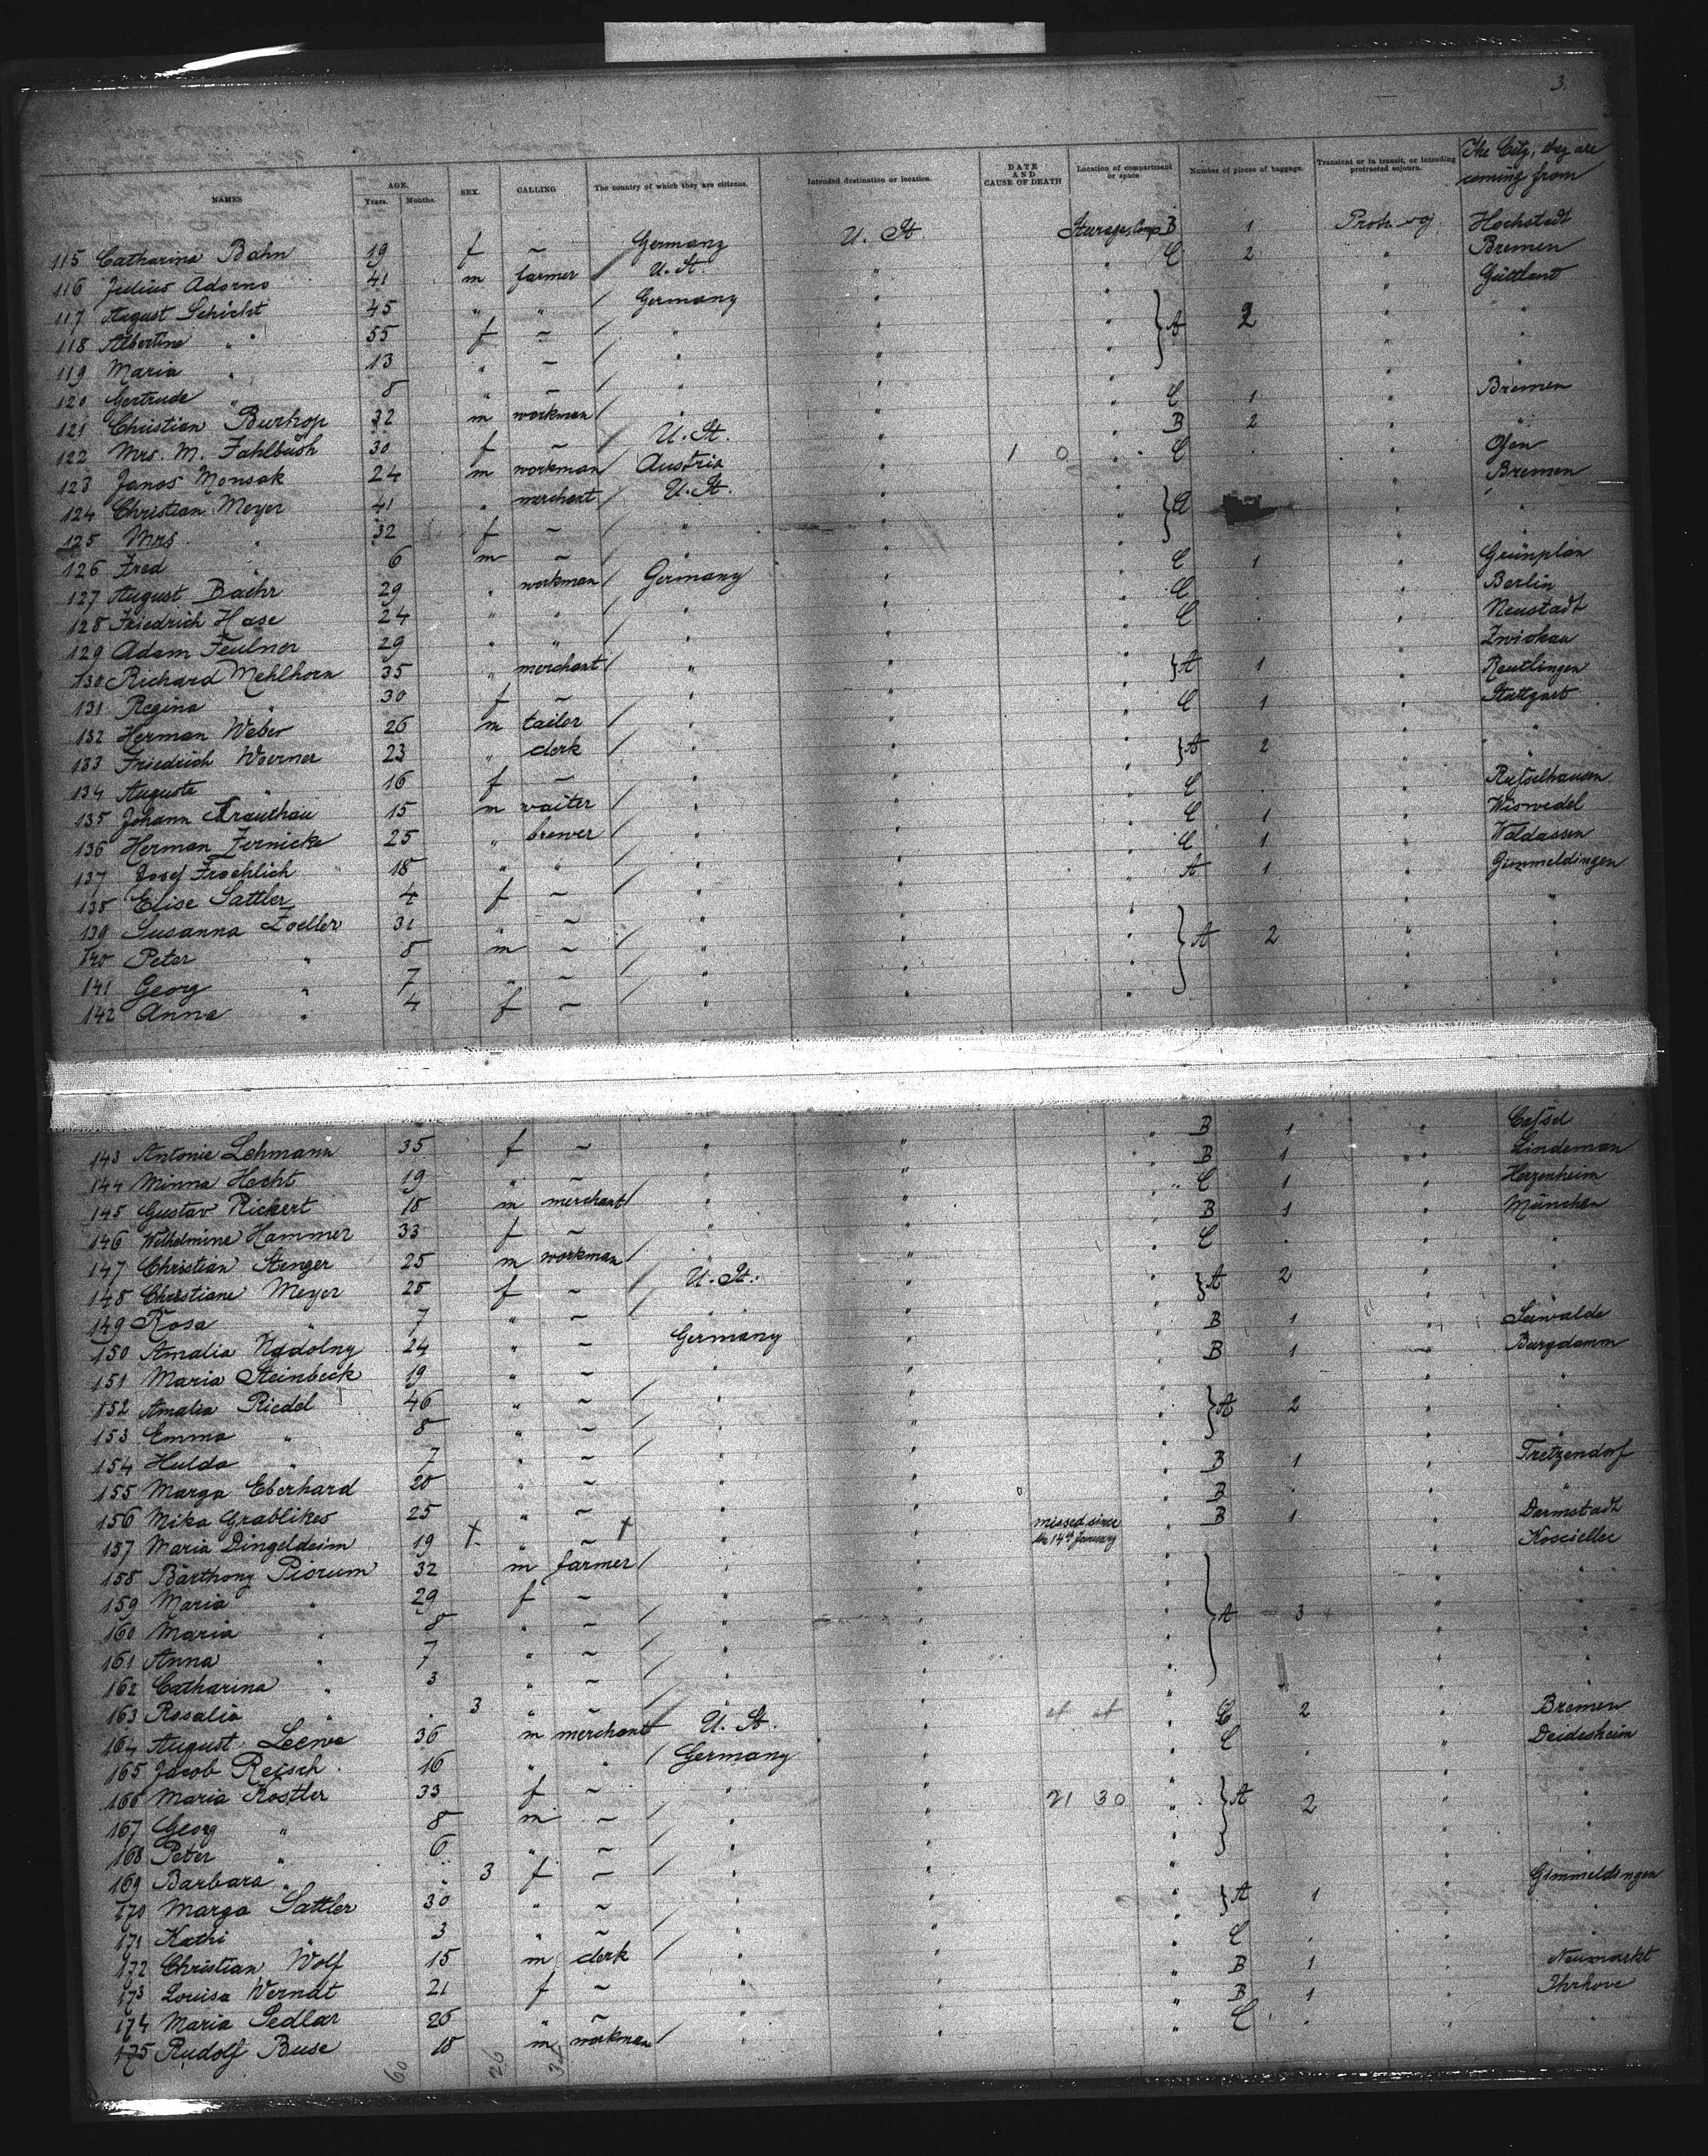 3.
NAMES AGE. Years. Months. SEX. CALLING The country of which they are citizens. Intended destination or location. DATE AND CAUSE OF DEATH Location of compartment or space Number of pieces of baggage. Transient or in transit, or intending protracted sojourn. The City, they are coming from
115 Catharina Bahn 19 f – Germany U. St. Steerage, Comp. B 1 Hochstadt
116 Julius Adorno 41 m farmer U. St. " " C 2 " Bremen
117 August Schicht 45 " " Germany " " " Güttland
118 Albertine " 55 f – " " " A 2 " "
119 Maria " 13 " – " " " " "
120 Gertrude " 8 " – " " " " "
121 Christian Burkop 32 m workman " " " C 1 " Bremen
122 Mrs. M. Fahlbush 30 f – U. St. " " B 2 " "
123 Janos Monsak 24 m workman Austria " 1 0 " C " Ofen
124 Christian Meyer 41 " merchant U. St. " " " Bremen
125 Mrs " 32 f – " " " A " "
126 Fred " 6 m – " " " " "
127 August Baehr 29 " workman Germany " " C 1 " Grünplan
128 Friedrich Hase 24 " " " " " C " Berlin
129 Adam Feulner 29 " " " " " C " Neustadt
130 Richard Mehlhorn 35 " merchant " " " A 1 " Zwickau
131 Regina " 30 f – " " " " Reutlingen
132 Herman Weber 26 m tailor " " " C 1 " Stuttgart
133 Friedrich Woerner 23 " clerk " " " A 2 " "
134 Auguste " 16 f – " " " " "
135 Johann Krauthau 15 m waiter " " " C " Rußelhausen
136 Herman Zernicke 25 " brewer " " " C 1 " Wiswedel
137 Josef Froehlich 18 " " " " " C 1 " Waldassen
138 Elise Sattler 4 f – " " " A 1 " Gimmeldingen
139 Susanna Zoeller 31 " – " " " " "
140 Peter " 8 m – " " " A 2 " "
141 Georg " 7 " – " " " " "
142 Anna " 4 f – " " " " "
143 Antonie Lehmann 35 f – " " " B 1 " Caßel
144 Minna Hecht 19 " – " " " B 1 " Lindeman
145 Gustav Rickert 18 m merchant " " " C 1 " Herzenheim
146 Wilhelmine Hammer 33 f – " " " B 1 " München
147 Christian Stenger 25 m workman " " " C " "
148 Christiane Meyer 25 f – U. St. " " A 2 " "
149 Rosa " 7 " – " " " " "
150 Amalia Nadolny 24 " – Germany " " B 1 " Seewalde
151 Maria Steinbeck 19 " – " " " B 1 " Burgdamm
152 Amalia Riedel 46 " – " " " " "
153 Emma " 8 " – " " " A 2 " "
154 Hulda " 7 " – " " " " "
155 Marga Eberhard 20 " – " " " B 1 " Tretzendorf
156 Mika Grablikes 25 " – " " " B " "
157 Maria Dingeldeim 19 † " – † " " missed since the 14th January " B 1 " Darmstadt
158 Barthony Piorum 32 m farmer " " " " Koscielec
159 Maria " 29 f – " " " " "
160 Maria " 8 " – " " " A 3 " "
161 Anna " 7 " – " " " " "
162 Catharina " 3 " – " " " " "
163 Rosalia " 3 " – " " " " "
164 August Leewe 36 m merchant U. St. " " C 2 " Bremen
165 Jacob Reisch 16 " " Germany " " C " Deidesheim
166 Maria Kostler 33 f – " " " " "
167 Georg " 8 m – " " 21 30 " A 2 " "
168 Peter " 6 " – " " " " "
169 Barbara " 3 f – " " " " "
170 Marga Sattler 30 " – " " " A 1 " Gimmeldingen
171 Kathi " 3 " – " " " " "
172 Christian Wolf 15 m clerk " " " C " "
173 Louisa Werndt 21 f – " " " B 1 " Neumarkt
174 Maria Sedlar 26 " – " " " B 1 " Ihrhove
175 Rudolf Buse 18 m workman " " " C " "
60 26 34